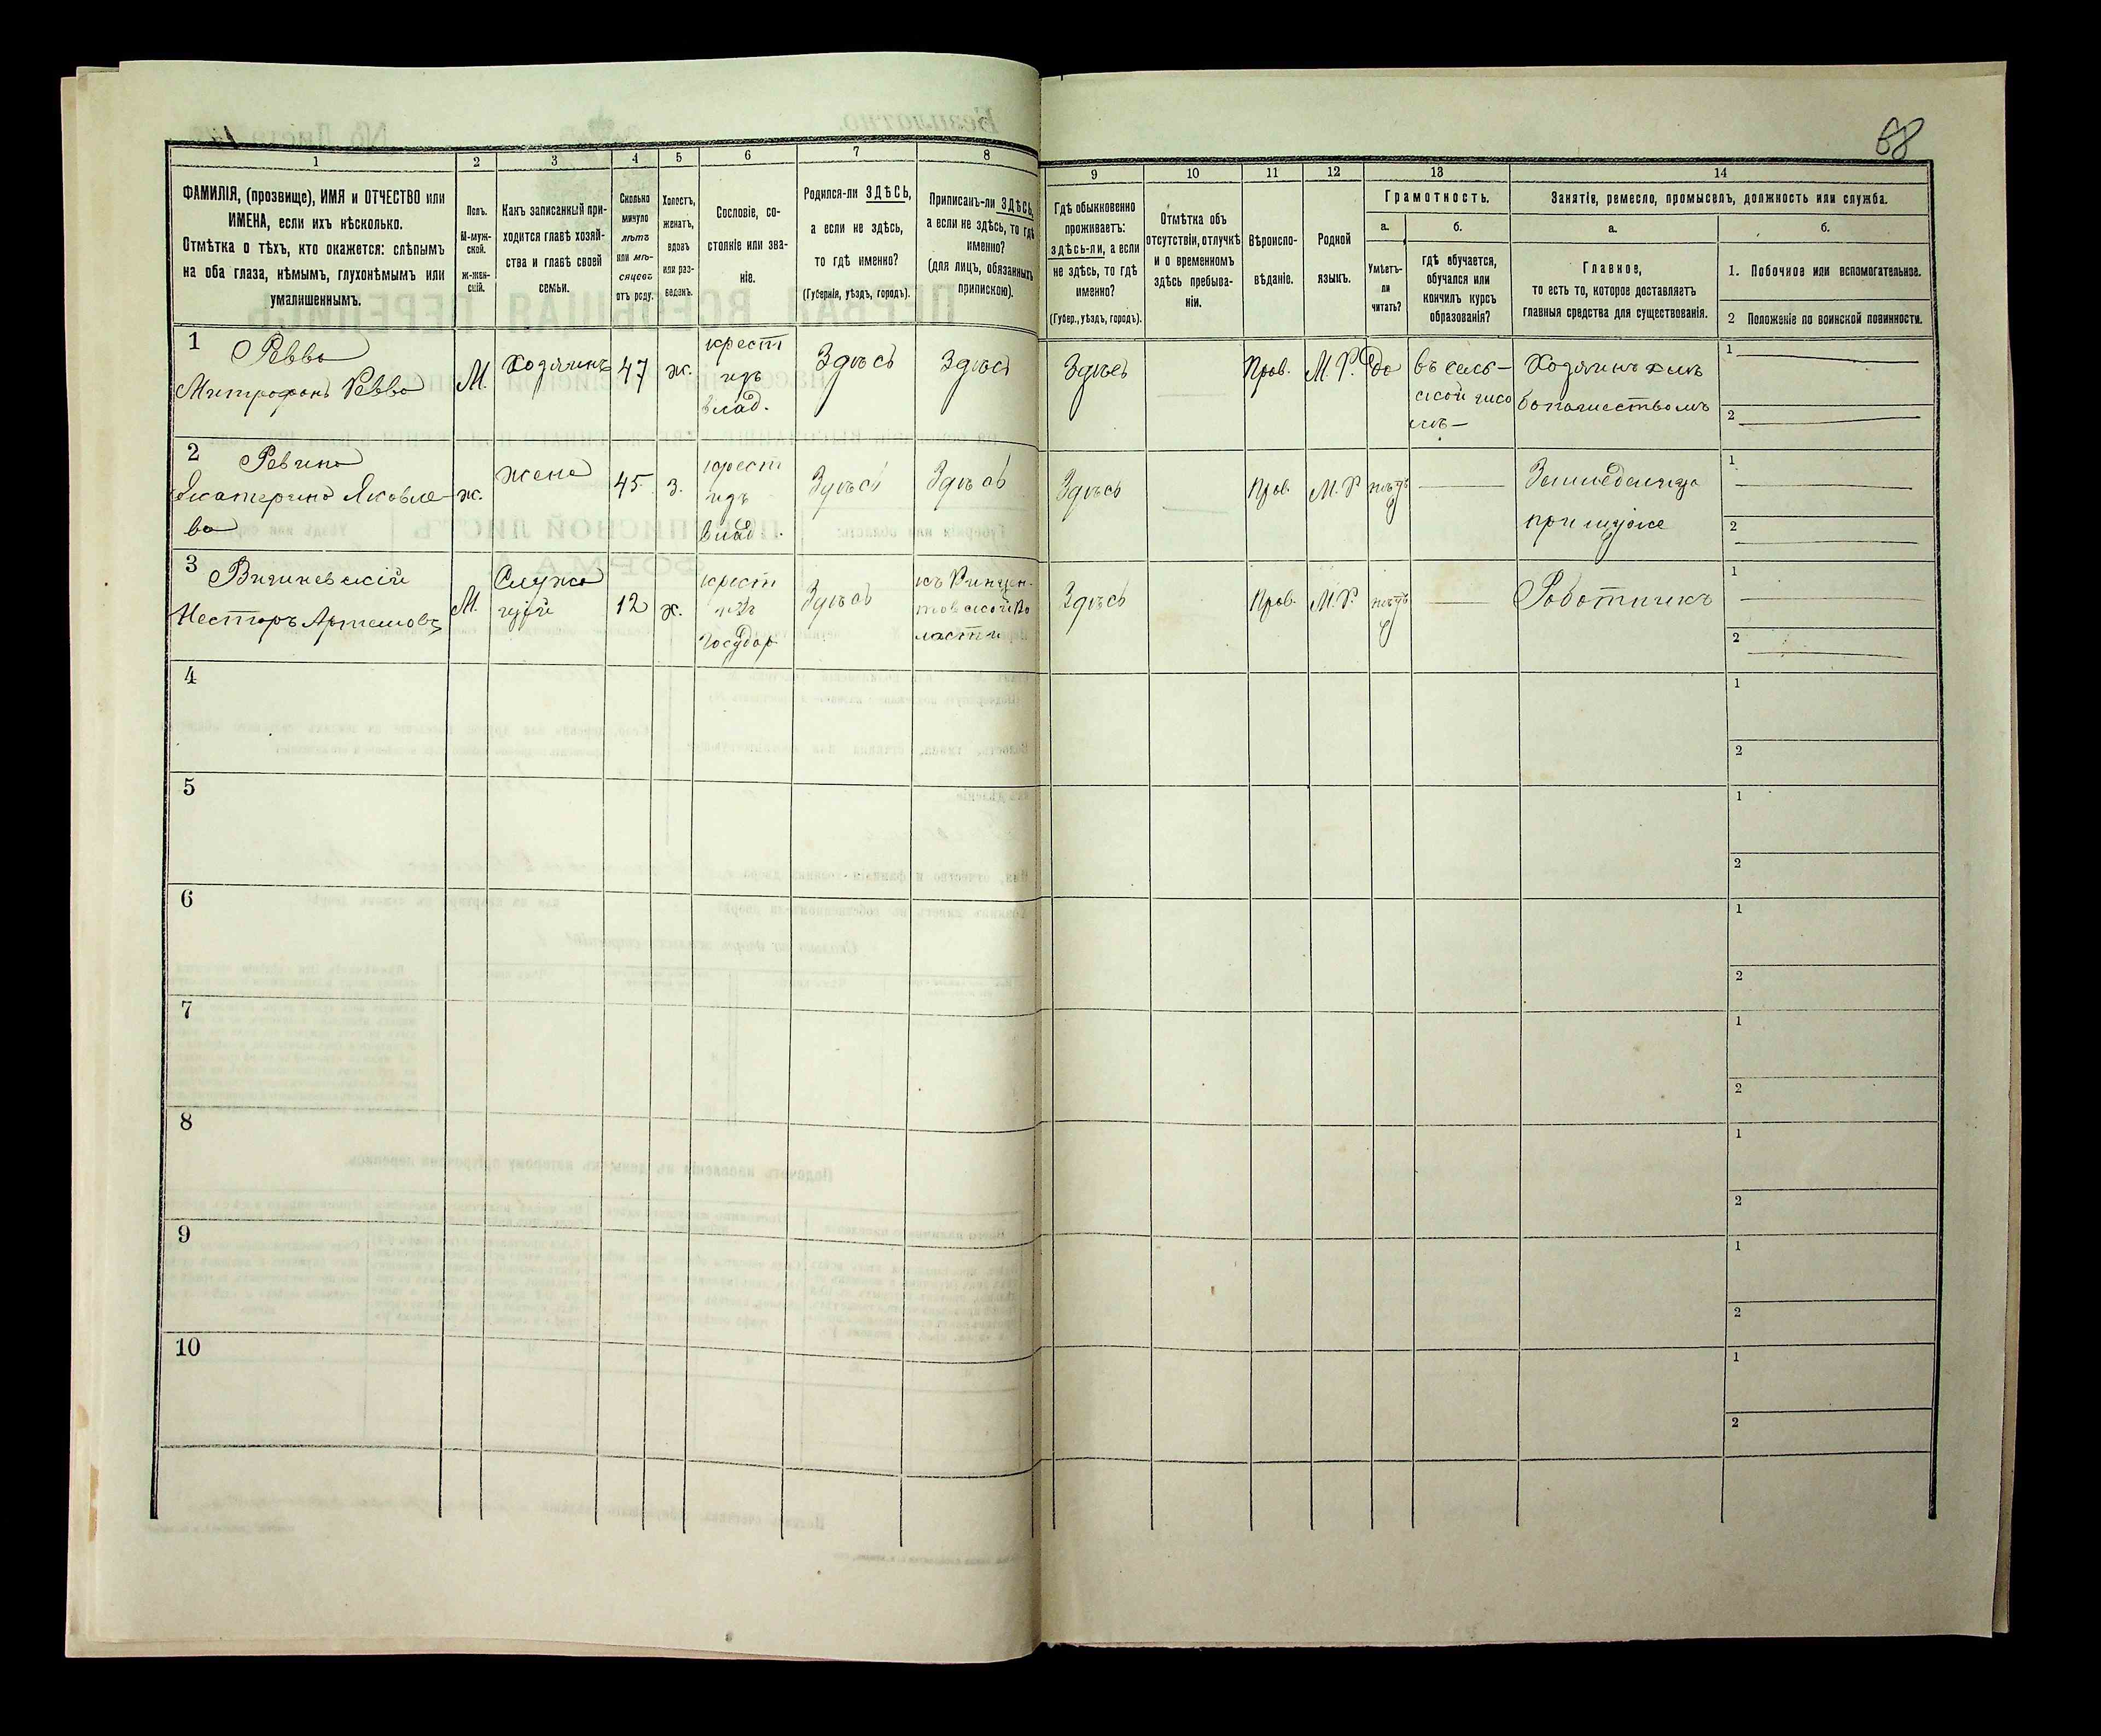 68
1 2 3 4 5 6 7 8 9 10 11 12 13 14
ФАМИЛІЯ, (прозвище), ИМЯ и ОТЧЕСТВО или
ИМЕНА, если ихъ нѣсколько.
Отмѣтка о тѣхъ, кто окажется: слѣпымъ
на оба глаза, нѣмымъ, глухонѣмымъ или
умалишеннымъ.
Полъ.
М-муж-
ской.
ж-жен-
скій.
Какъ записанный при-
ходится главѣ хозяй-
ства и главѣ своей
семьи.
Сколько
минуло
лѣтъ
или мѣ-
сяцевъ
отъ роду.
Холостъ,
женатъ,
вдовъ
или раз-
веденъ.
Сословіе, со-
стояніе или зва-
ніе.
Родился-ли ЗДѢСЬ,
а если не здѣсь,
то гдѣ именно?
(Губернія, уѣздъ, городъ).
Приписанъ-ли ЗДѢСЬ,
а если не здѣсь, то гдѣ
именно?
(для лицъ, обязанныхъ
припискою).
Гдѣ обыкновенно
проживаетъ:
здѣсь-ли, а если
не здѣсь, то гдѣ
именно?
(Губер., уѣздъ, городъ).
Отмѣтка объ
отсутствіи, отлучкѣ
и о временномъ
здѣсь пребыва-
ніи.
Вѣроиспо-
вѣданіе.
Родной
языкъ.
Грамотность.
а.
Умѣетъ-
ли
читать?
б.
гдѣ обучается,
обучался или
кончилъ курсъ
образованія?
Занятіе, ремесло, промыселъ, должность или служба.
а.
Главное,
то есть то, которое доставляетъ
главныя средства для существованія.
б.
1. Побочное или вспомогательное.
2 Положеніе по воинской повинности.
1 Ревва
Митрофанъ Ревва
М.
Хозяинъ
47
ж.
крест
изъ
влад.
Здѣсь
Здѣсь
Здѣсь
Прав.
М. Р.
да
въ сель-
ской шко
лѣ-
Хозяинъ хлѣ
бопашествомъ
1
2
2 Ревина
Екатерина Яковле-
ва
ж.
жена
45
з.
крест
изъ
влад.
Здѣсь
Здѣсь
Здѣсь
Прав.
М. Р.
нѣтъ
при мужѣ
1
2
3 Вишневскій
Несторъ Артемовъ
М.
Служа
щій
12
х.
крест
изъ
Государ
Здѣсь
ласти
Здѣсь
Прав.
М. Р.
нѣтъ
Работникъ
1
2
4
1
2
5
1
2
6
1
2
7
1
2
8
1
2
9
1
2
10
1
2